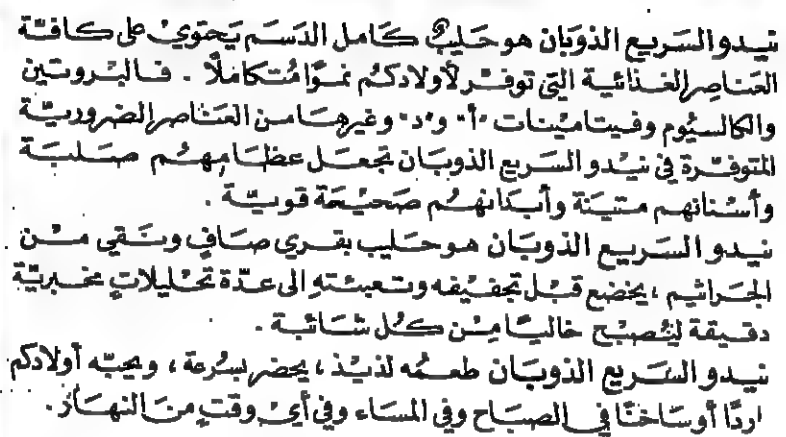 نيدو السَريع الذوبَان هو حَليبٌ كَامل الدَسَم يَحتَوي على كافَّة
العَناصِر الغذائية التي توفّر لأولادكُم نموًّا مُتكاملًا . فالبروتين
والكالسيُوم وفيتاميْنات "أ" و"د" وغيرهَا من العَناصر الضروريّة
المتوفّرة في نيْدو السَريع الذوبَان تجعَل عظَامهُم صَلبَة
وأسْنانهم متينَة وأبدَانهُم صَحيْحَة قويّة .
نيدو السَريع الذوبَان هو حَليب بقري صَافٍ ونَقي مْن
الجَراثيم ، يخضع قبْل تجفيْفه وتعبئتهِ الى عدّة تحْليلاتٍ مخبريّة
دقيقة ليُصبْح خاليًا مِنْ كُل شَائبة .
نيدو السَريع الذوبَان طعمُه لذيْذ ، يحضر بسُرعة ، ويحبّه أولادكم
اردًا أو سَاخنًا في الصبَاح وفي المسَاء وفي أيْ وقتٍ منَ النهَار .